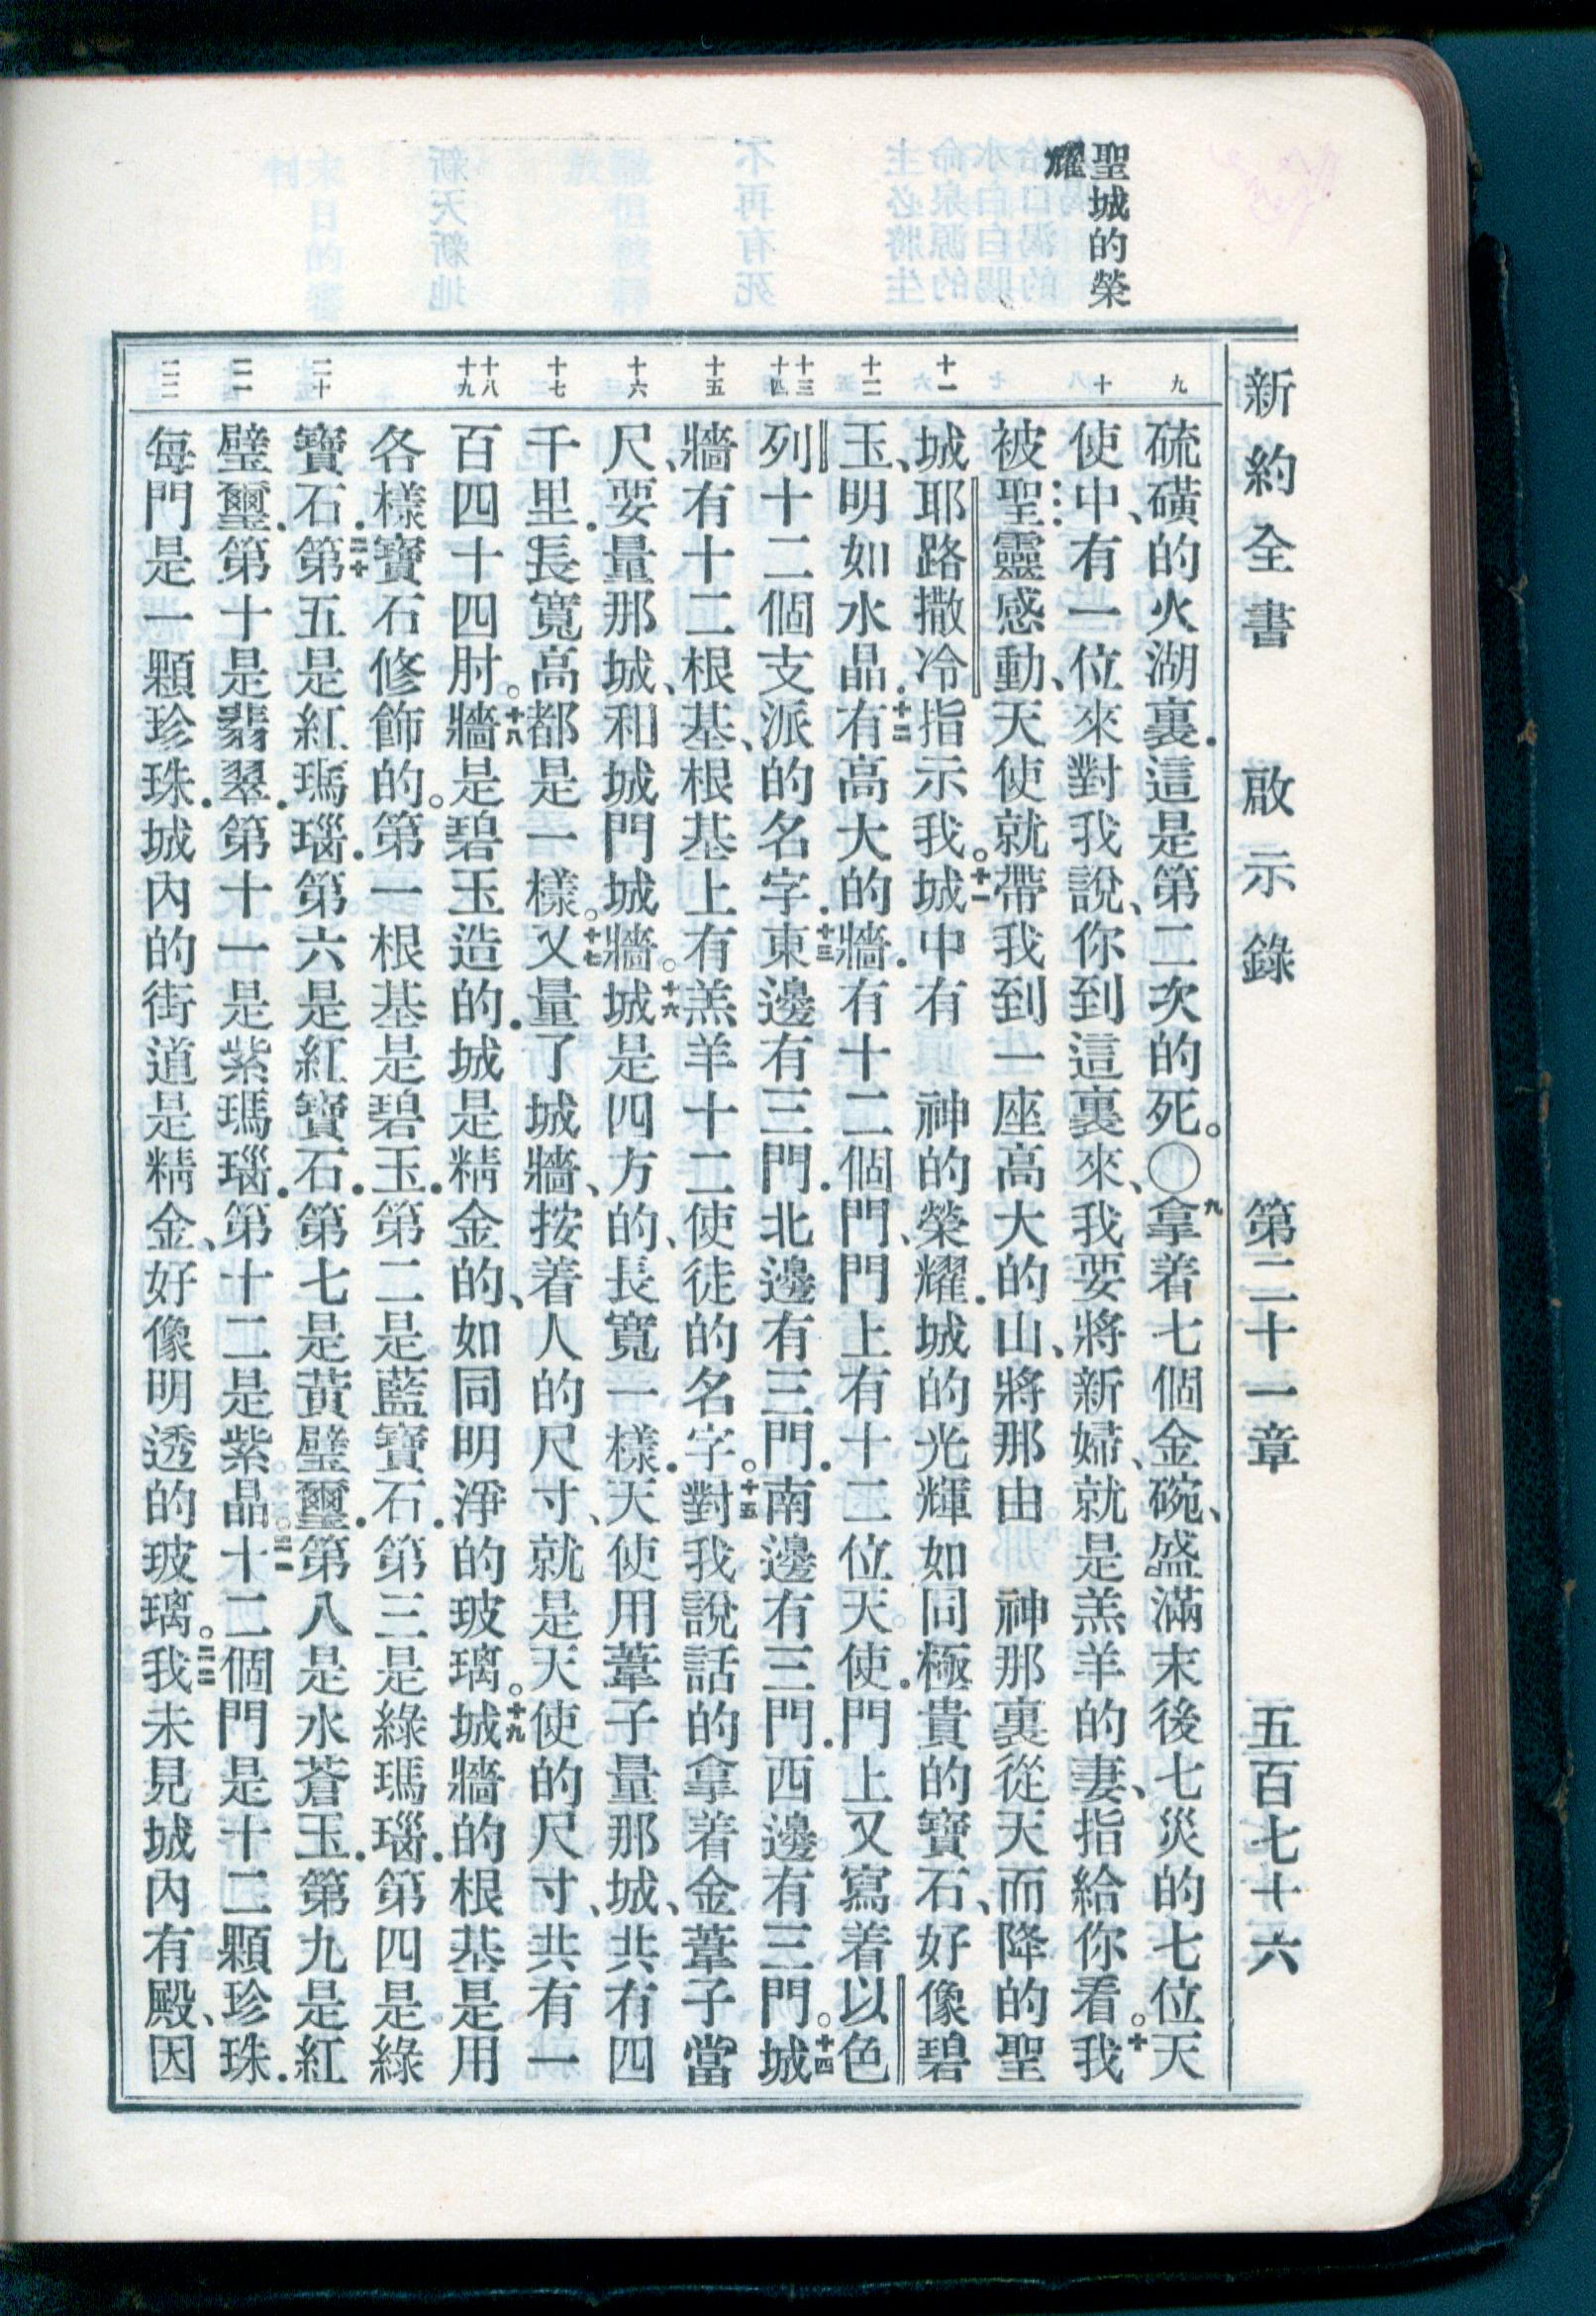 新約全書　啟示錄　第二十一章　五百七十六
聖城的榮
耀
九
十
十一
十二
十三
十四
十五
十六
十七
十八
十九
二十
二一
二二
硫磺的火湖裏．這是第二次的死。〇九拿着七個金碗、盛滿末後七災的七位天
使中、有一位來對我說、你到這裏來、我要將新婦、就是羔羊的妻、指給你看。十我
被聖靈感動、天使就帶我到一座高大的山、將那由　神那裏從天而降的聖
城耶路撒冷指示我。十一城中有　神的榮耀．城的光輝如同極貴的寶石、好像碧
玉、明如水晶．十二有高大的牆．有十二個門、門上有十二位天使．門上又寫着以色
列十二個支派的名字．十三東邊有三門．北邊有三門．南邊有三門．西邊有三門。十四城
牆有十二根基、根基上有羔羊十二使徒的名字。十五對我說話的拿着金葦子當
尺、要量那城、和城門城牆。十六城是四方的、長寬一樣．天使用葦子量那城、共有四
千里．長寬高都是一樣。十七又量了城牆、按着人的尺寸、就是天使的尺寸、共有一
百四十四肘。十八牆是碧玉造的．城是精金的、如同明淨的玻璃。十九城牆的根基是用
各樣寶石修飾的。第一根基是碧玉．第二是藍寶石．第三是綠瑪瑙．第四是綠
寶石．二十第五是紅瑪瑙．第六是紅寶石．第七是黃璧璽．第八是水蒼玉．第九是紅
璧璽．第十是翡翠．第十一是紫瑪瑙．第十二是紫晶。二一十二個門是十二顆珍珠．
每門是一顆珍珠．城內的街道是精金、好像明透的玻璃。二二我未見城內有殿、因